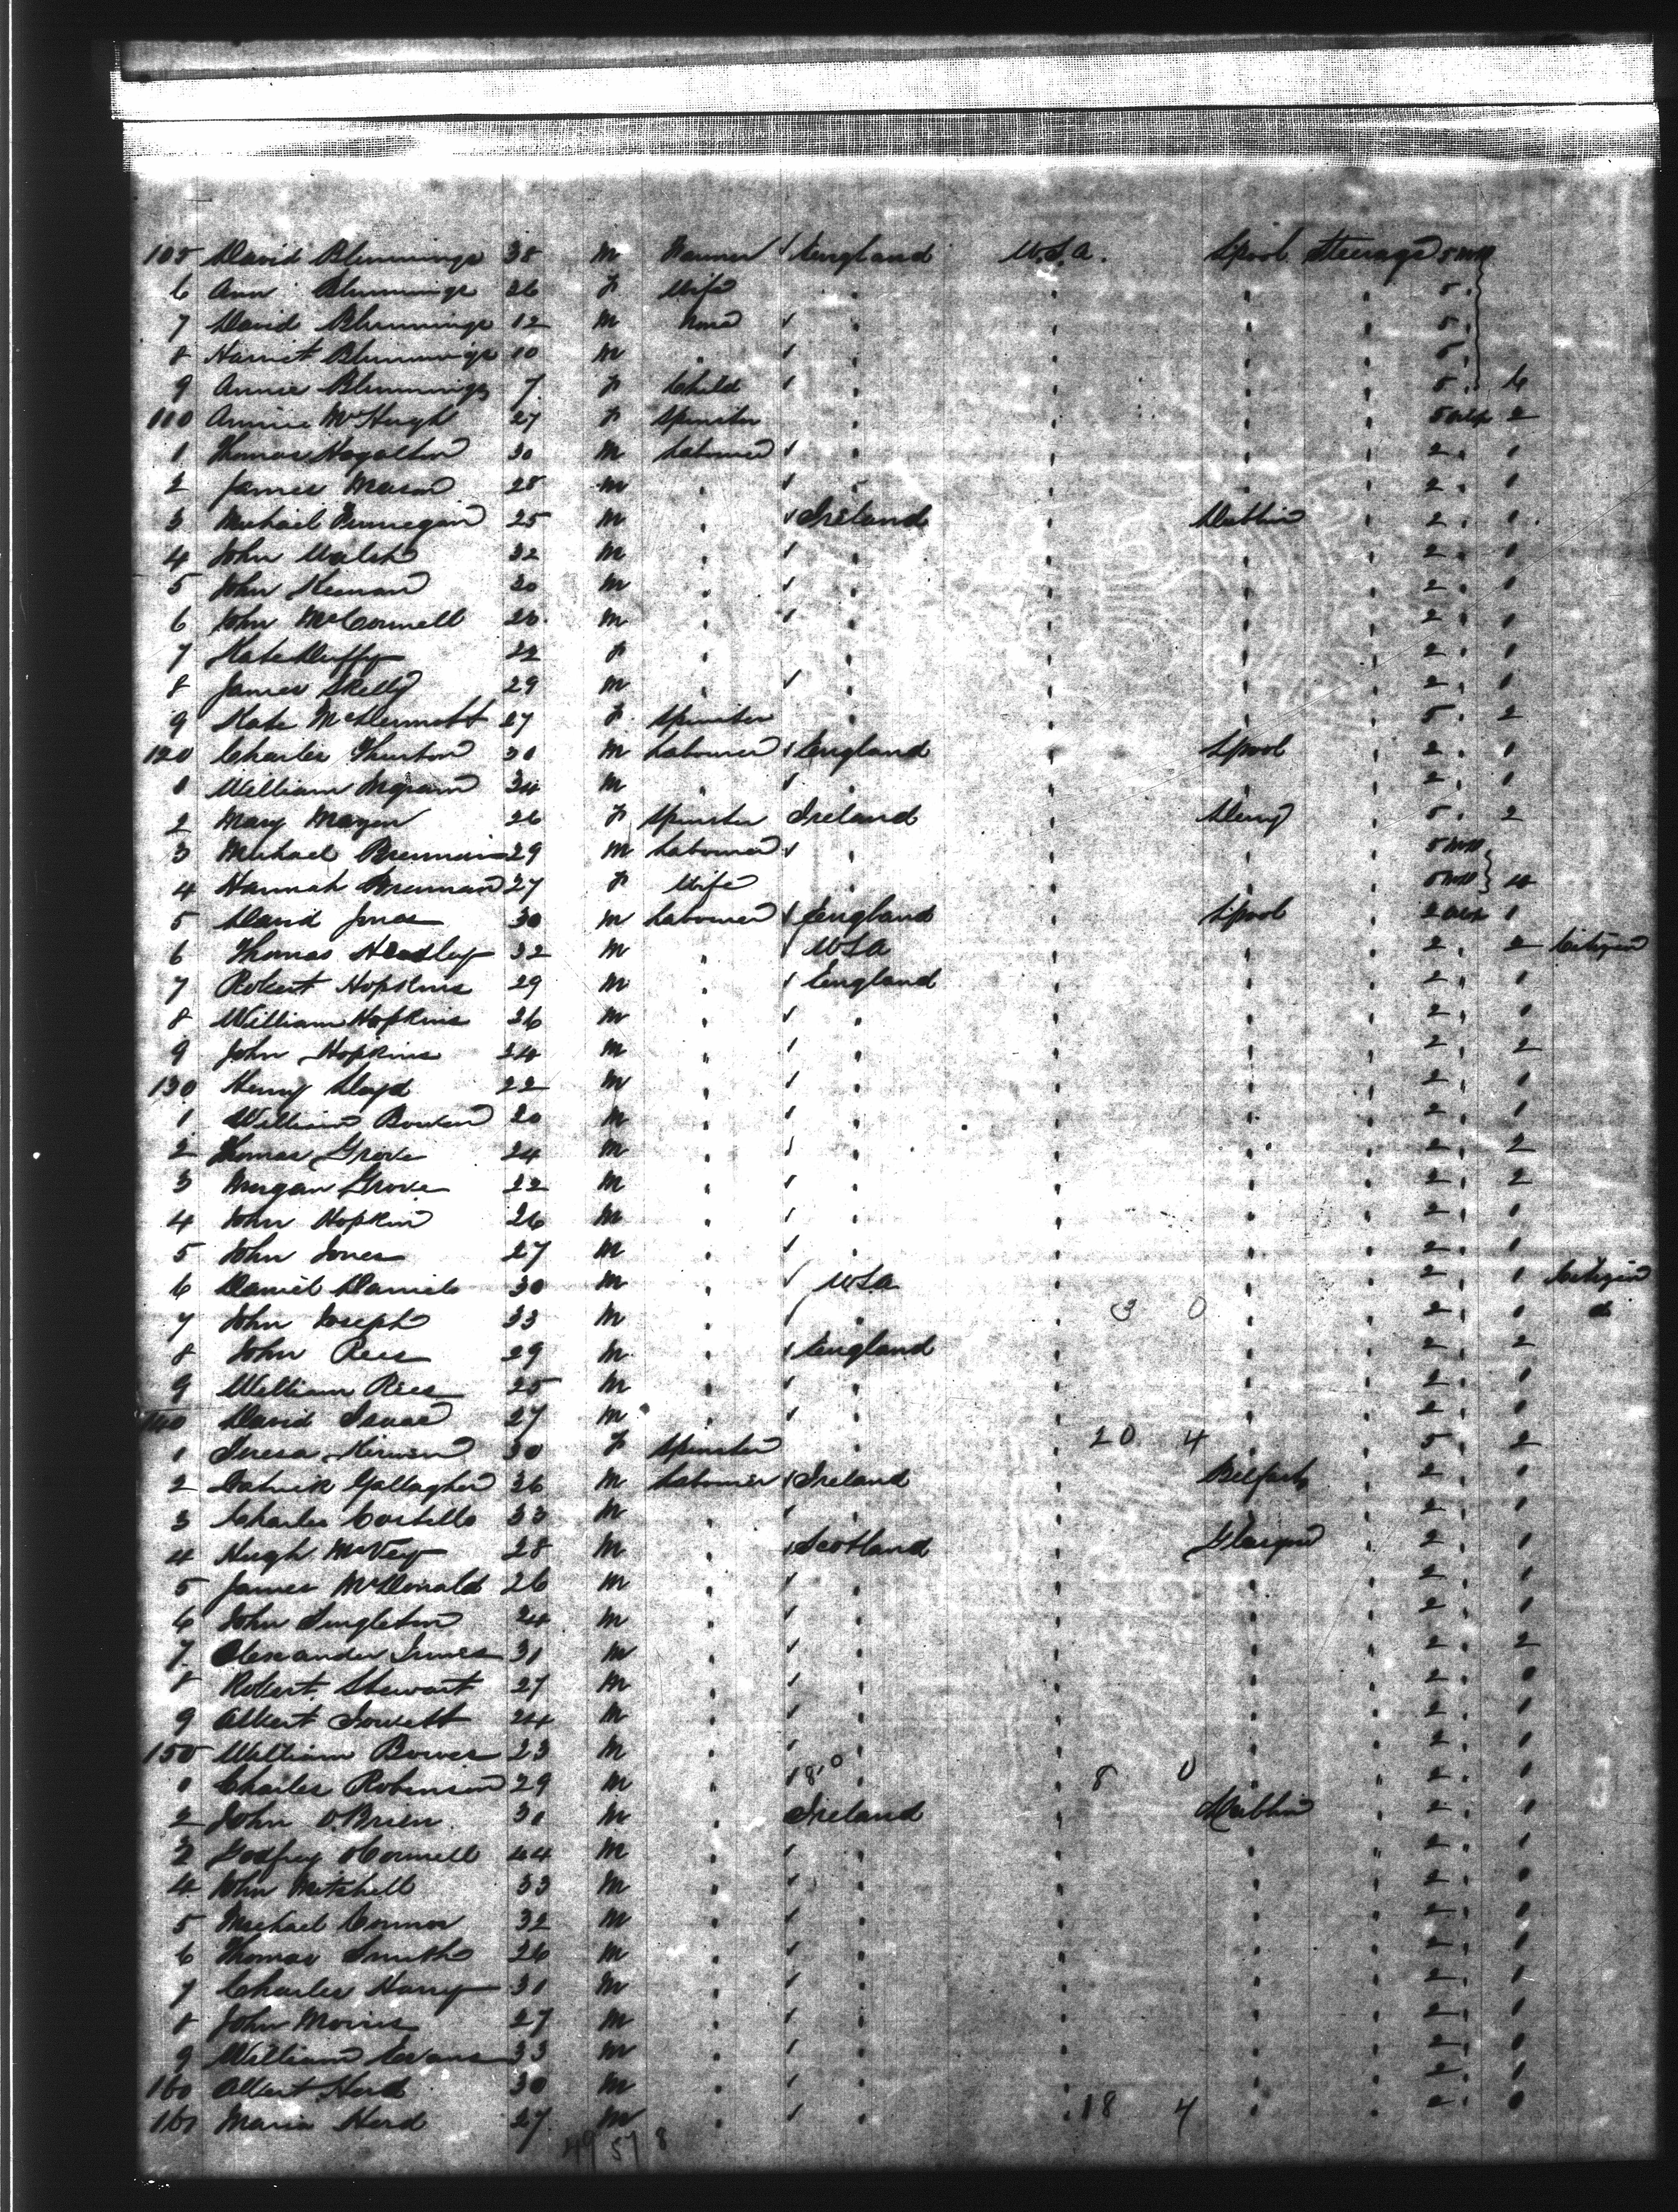 105 David Blummings 38 M England U.S.A. Lpool Steerage 5
6 Ann Blummings 36 F Wife " " " " 5 "
7 David Blummings 12 M None " " " " 5 "
8 Harriet Blummings 10 M " " " " " 5 "
9 Annie Blummings 7 F Child " " " " 5 " 6
110 Annie McHugh 27 F Spinster " " " " 5 2
1 Thomas 30 M Labourer " " " " 2 " 1
2 James Mason 28 M " " " " " 2 " 1
3 Michael Finnegan 25 M " Ireland " Dublin " 2 " 1
4 John Walsh 32 M " " " " " 2 " 1
5 John Keenan 20 M " " " " " 2 " 1
6 John McConnell 20 M " " " " " 2 " 1
7 Kate Duffy 22 F " " " " " 2 " 1
8 James Skelly 29 M " " " " " 2 " 1
9 Kate McDermott 27 F Spinster " " " " 5 " 2
120 Charles Thurton 30 M Labourer England " Lpool " 2 " 1
1 William Ingram 34 M " " " " " 2 " 1
2 Mary 26 F Spinster Ireland " Derry " 5 " 2
3 Michael Brennan 29 M Labourer " " " " 5
4 Hannah Brennan 27 F Wife " " " " 5 4
5 David Jones 30 M Labourer England " Lpool " 2 1
6 Thomas Headley 32 M " USA " " " 2 " 2 Citizen
7 Robert Hopkins 29 M " England " " " 2 " 1
8 William Hopkins 36 M " " " " " 2 " 1
9 John Hopkins 24 M " " " " " 2 " 2
130 Henry Lloyd 22 M " " " " " 2 " 1
1 William Bowen 20 M " " " " " 2 " 1
2 Thomas Grove 24 M " " " " " 2 " 2
3 Morgan Grove 22 M " " " " " 2 " 2
4 John Hopkin 26 M " " " " " 2 " 1
5 John Jones 27 M " " " " " 2 " 1
6 Daniel Daniels 30 M " USA " " " 2 " 1 Citizen
7 John Joseph 33 M " " " 3 0 " " 2 " 1
8 John Rees 29 M " England " " " 2 " 2
9 William Rees 25 M " " " " " 2 " 1
140 David Isaac 27 M " " " " " 2 " 1
1 Teresa Kirwin 30 F Spinster " " 20 4 " " 5 " 2
2 Patrick Gallagher 36 M Labourer Ireland " Belfast " 2 " 1
3 Charles Costello 33 M " " " " " 2 " 1
4 Hugh McVey 28 M " Scotland " Glasgow " 2 " 1
5 James McDonald 26 M " " " " " 2 " 1
6 John Singleton 24 M " " " " " 2 " 1
7 Alexander Innes 31 M " " " " " 2 " 2
8 Robert Stewart 27 M " " " " " 2 " 1
9 Albert Jowett 24 M " " " " " 2 " 1
150 William Bowes 23 M " " " " " 2 " 1
1 Charles Robinson 29 M " " " 8 0 " " 2 " 1
2 John O'Brien 31 M " Ireland " Dublin " 2 " 1
3 Godfrey Connell 44 M " " " " " 2 " 1
4 John Mitchell 33 M " " " " " 2 " 1
5 Michael Connor 32 M " " " " " 2 " 1
6 Thomas Smith 26 M " " " " " 2 " 1
7 Charles Harry 31 M " " " " " 2 " 1
8 John Morris 27 M " " " " " 2 " 1
9 William Evans 33 M " " " " " 2 " 1
160 Albert Herd 30 M " " " " " 2 " 1
161 Maria Herd 27 M " " " 18 4 " " 2 " 1
49 57 8